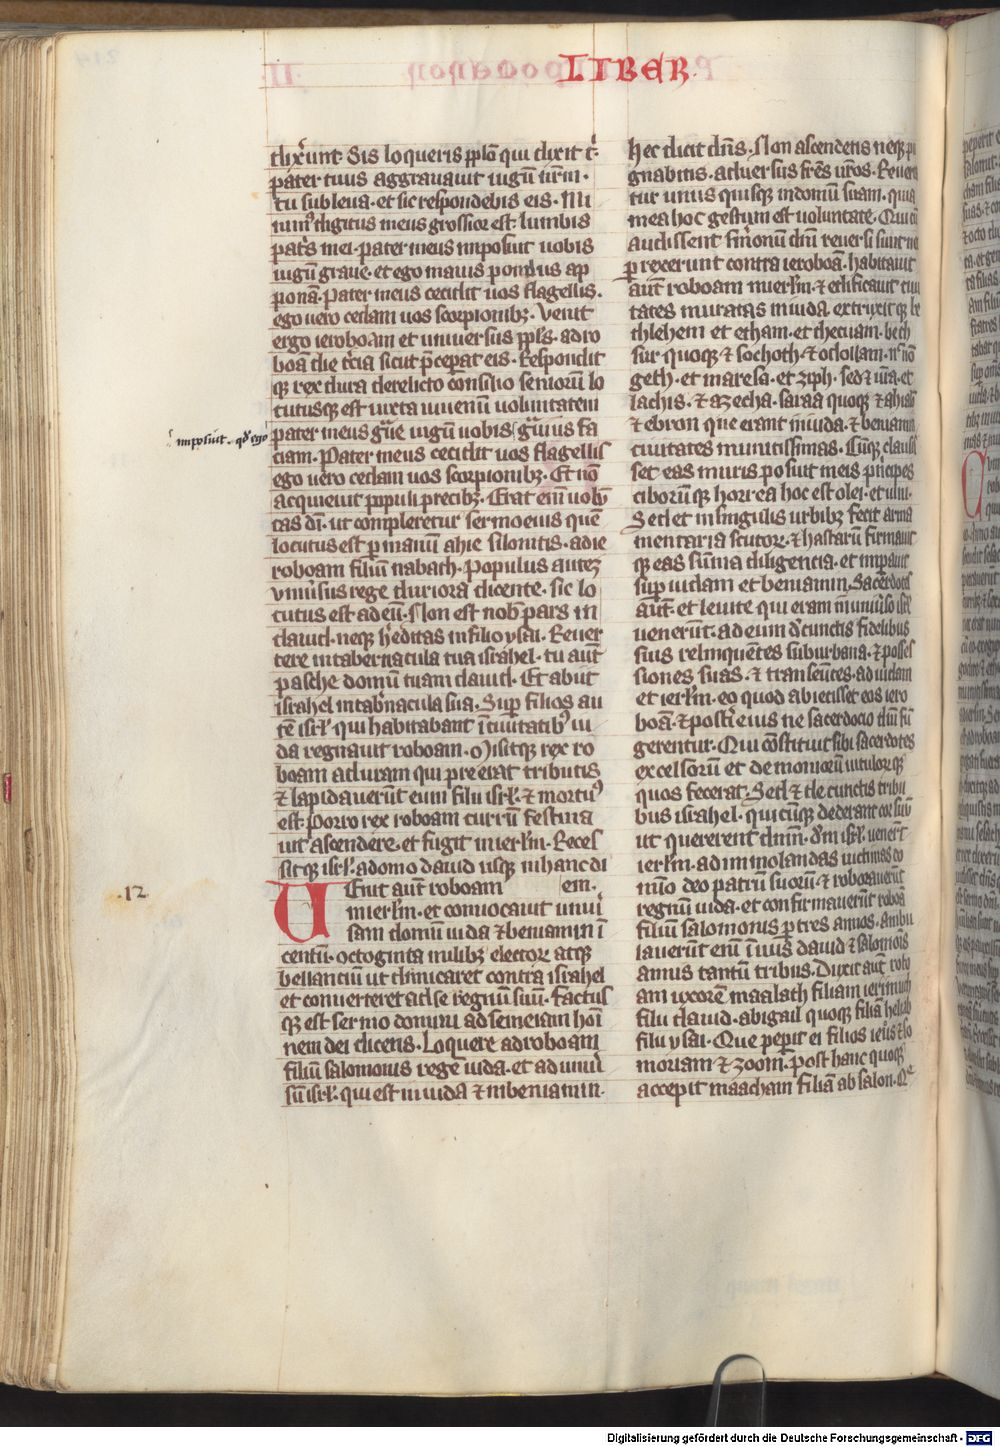 LIBER.
dixerūt. Sic loqueris pplō qui dixit t̾.
pater tuus aggrauauit iugū nrm̄.
tu subleua. et sic respondebis eis. Mi
nim⁹ digitus meus grossior est lumbis
patr̾s mei. pater meus imposuit uobis
iugū graue. et ego maius pondus ap
ponā. Pater meus cecidit uos flagellis.
ego uero cedam uos scorpionibꝫ. Venit
ergo ieroboam et uniuersus ppl̄s. ad ro
boā die t̾cia sicut p̄cepat eis. Respondit
qꝫ rex dura derelicto consilio seniorū lo
cutusqꝫ est iuxta iuuenū uoluntatem
pater meus g̾ue iugū uobis g̾uius fa
imposuit. qd̄ ego
ciam. Pater meus cecidit uos flagellis
ego uero cedam uos scorpionibꝫ. Et nō
acquieuit populi precibꝫ. Erat eni͞ uolū
tas dī. ut compleretur sermo eius quē
locutus est p manū ahie silonitis. ad ie
roboam filiū nabath. Populus autē
uniu͛sus rege duriora dicente. sic lo
cutus est ad eū. Non est nob̄ pars in
dauid. neqꝫ h̾editas in filio ysai. Reuer
tere in tabernacula tua israhel. tu aut̄
pasche domū tuam dauid. Et abiit
israhel in tab̾nacula sua. Sup filios au
tē isrl̄. qui habitabant ī ciuitatibꝫ iu
da regnauit roboam. Misitqꝫ rex ro
boam aduram qui preerat tributis
⁊ lapidauerūt eum filii isrl̄. ⁊ mortu⁹
est. Porro rex roboam currū festina
uit ascendere. et fugit in ierl̄m. Reces
sitqꝫ isrl̄. a domo dauid usqꝫ in hanc di
.12.
UEnit aut̄ roboam em.
in ierl̄m. et conuocauit uniu͛
sam domū iuda ⁊ beniamin ī
centū. octoginta milibꝫ electorꝫ atqꝫ
bellanciū ut dimicaret contra israhel
et conuerteret ad se regnū suū. Factus
qꝫ est sermo domini ad semeiam homi
nem dei dicens. Loquere ad roboam
filiū salomonis regē iuda. et ad uniu͛
sū isrl̄. qui est in iuda ⁊ in beniamin.
hec dicit dn̄s. Non ascendetis neqꝫ pu
gnabitis. aduersus frēs ur̄os. Reuerta
tur unus quisqꝫ in domū suam. quia
mea hoc gestum est uoluntate. Qui cū
audissent sermonū dn̄i reuersi sunt ne
prexerunt contra ieroboā. habitauit
aut̄ roboam in ierl̄m. ⁊ edificauit ciui
tates muratas in iuda extruxitqꝫ be
thlehem et etham. et thecuam. beth
sur quoqꝫ ⁊ sochoth. ⁊ odollam. nᵉnō
geth. et maresa. et ziph. sed ⁊ ura. et
lachis. ⁊ azecha. saraa quoqꝫ ⁊ ahialō
⁊ ebron que erant in iuda. ⁊ beniamin
ciuitates munitissimas. Cūqꝫ clausis
set eas muris posuit in eis p̾ncipes
ciborūqꝫ horrea hoc est olei. et uini.
Sed et in singulis urbibꝫ fecit arma
mentaria scutorꝫ. ⁊ hastarū firmauit
qꝫ eas sūma diligencia. et imp̄auit
sup iudam et beniamin. Sacerdotes
aut̄. et leuite qui eram in uniu͛so isrl̄
uenerūt. ad eum de cunctis sedibus
suis relinquētes suburbana. ⁊ posses
siones suas. ⁊ transeūtes. ad iudam
et ierl̄m. eo quod abiecisset eos iero
boā. ⁊ post̾i eius ne sacerdocio dn̄i fū
gerentur. Qui cōstituit sibi sacerdotes
excelsorū et demoniorū uitulorūqꝫ
quos fecerat. Sed ⁊ de cunctis tribu
bus israhel. quicūqꝫ dederant cor suū
ut quererent dn̄m. dm̄ isrl̄. uenert̄
ierl̄m. ad immolandas uictimas do
mīo deo patrū suorū. ⁊ roborauerūt
regnū iuda. et confirmauerūt roboā
filiū salomonis p tres annos. Ambu
lauerūt enī ī uiis dauid ⁊ salomōis
annis tantū tribus. Duxit aut̄ robo
am uxorē maalath filiam ierimuth
filii dauid. abigail quoqꝫ filiā heliab
filii ysai. Que pepit ei filios ieus ⁊ so
moriam ⁊ zoom. Post hanc quoqꝫ
accepit maacham filiā absalon. Qᵉ
Digitalisierung gefördert durch die Deutsche Forschungsgemeinschaft - DFG